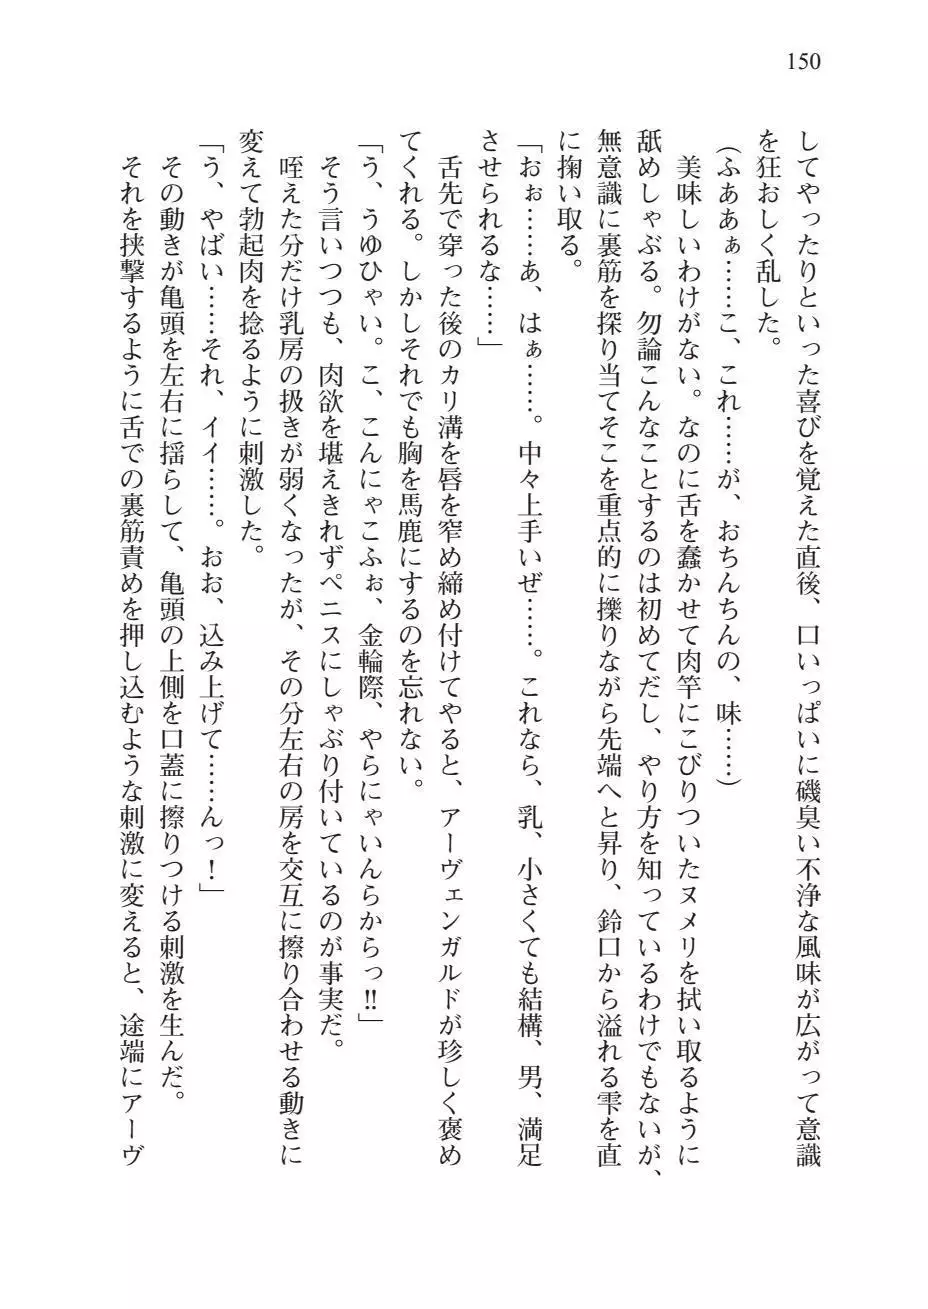 150
してやったりといった喜びを覚えた直後、口いっぱいに磯臭い不浄な風味が広がって意識
を狂おしく乱した。
(ふああぁ……こ、これ……が、おちんちんの、味……)
美味しいわけがない。なのに舌を蠢かせて肉竿にこびりついたヌメリを拭い取るように
舐めしゃぶる。勿論こんなことするのは初めてだし、やり方を知っているわけでもないが、
無意識に裏筋を探り当てそこを重点的に擽りながら先端へと昇り、鈴口から溢れる雫を直
に掬い取る。
「おぉ……あ、はぁ……。中々上手いぜ……。これなら、乳、小さくても結構、男、満足
させられるな……」
舌先で穿った後のカリ溝を唇を窄め締め付けてやると、アーヴェンガルドが珍しく褒め
てくれる。しかしそれでも胸を馬鹿にするのを忘れない。
「う、うゆひゃい。こ、こんにゃこふぉ、金輪際、やらにゃいんらからっ!!」
そう言いつつも、肉欲を堪えきれずペニスにしゃぶり付いているのが事実だ。
咥えた分だけ乳房の扱きが弱くなったが、その分左右の房を交互に擦り合わせる動きに
変えて勃起肉を捻るように刺激した。
「う、やばい……それ、イイ……。おお、込み上げて……んっ!」
その動きが亀頭を左右に揺らして、亀頭の上側を口蓋に擦りつける刺激を生んだ。
それを挟撃するように舌での裏筋責めを押し込むような刺激に変えると、途端にアーヴ